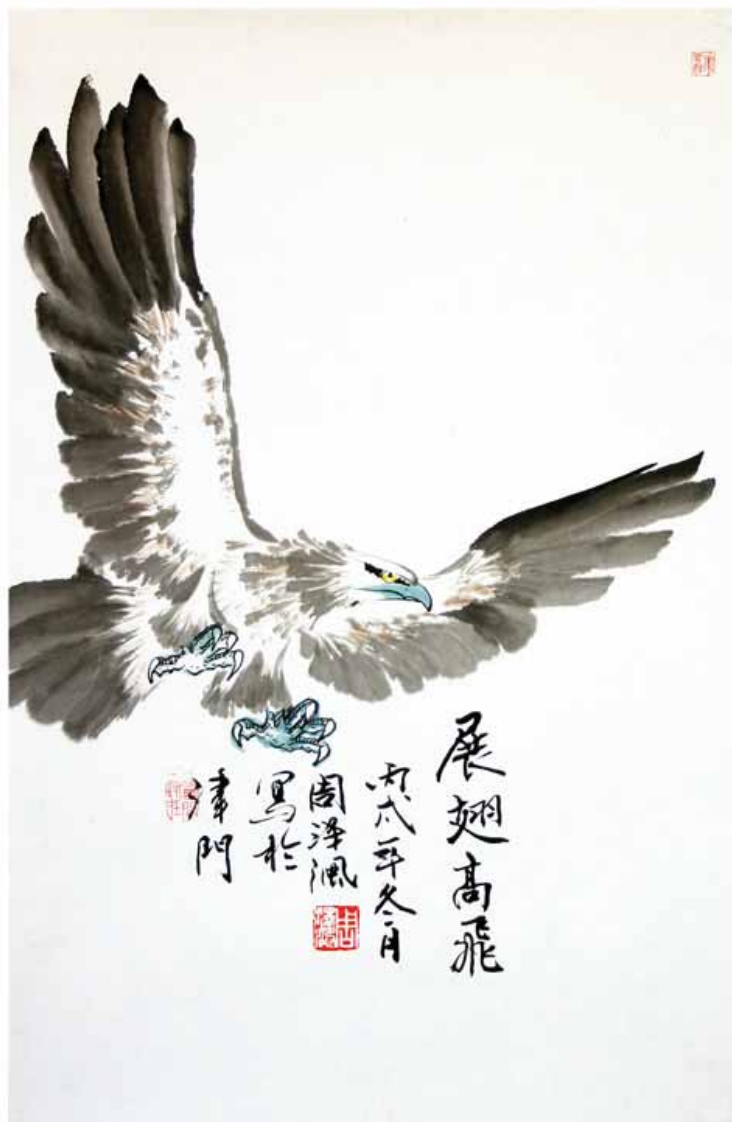 展翅高飛
丙戌年冬月
周泽渢
寫於
津門